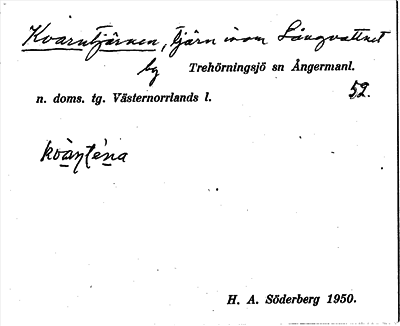 Kvarntjärnen, tjärn inom Långvattnet
by Trehörningsjö sn Ångermanl.
n. doms. tg. Västernorrlands l. 52.
kvàṇťéna
H. A. Söderberg 1950.